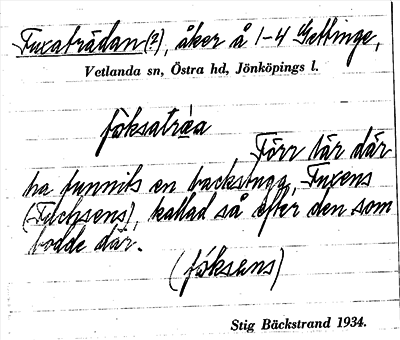 Fuxaträdan(?), åker å 1-4 Gettinge,
Vetlanda sn, Östra hd, Jönköpings l.
föksatráa
Förr lär där
ha funnits en backstuga, Fuxens
(Fuchsens), kallad så efter den som
bodde där.
(föksens)
Stig Bäckstrand 1934.